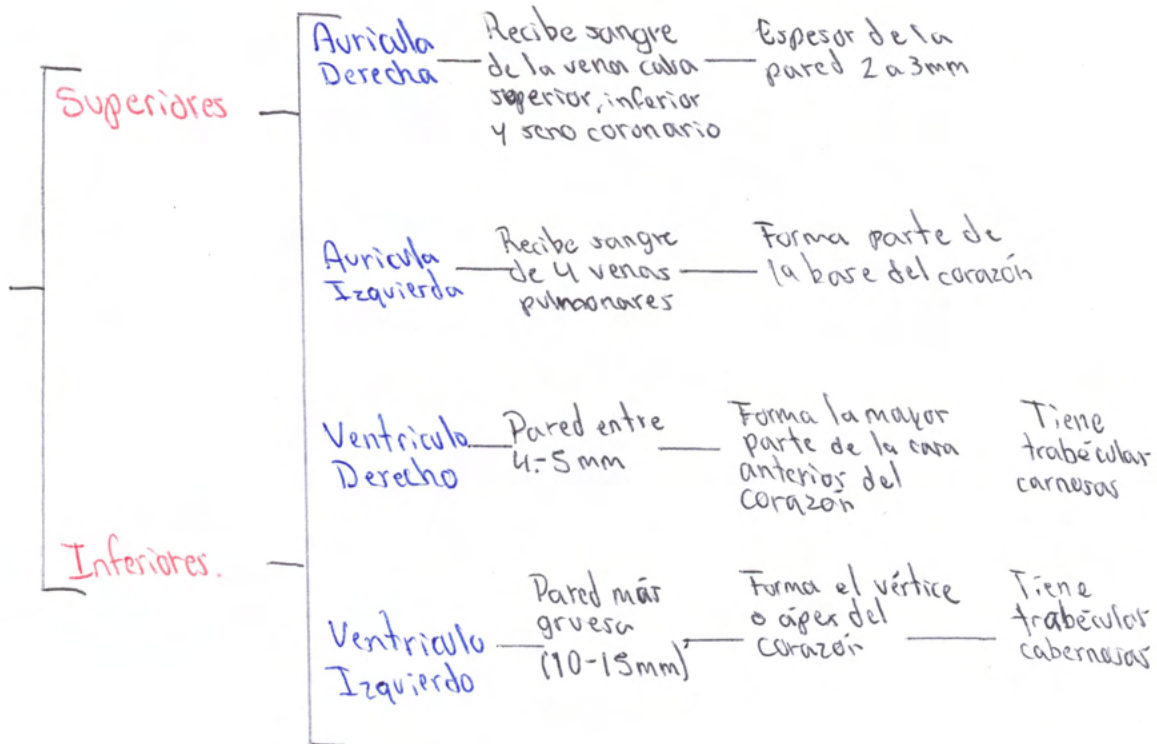 Superiores
Auricula
Derecha
Recibe sangre
de la vena caba
superior, inferior
y seno coronario
Espesor de la
pared 2 a 3mm
Auricula
Izquierda
Recibe sangre
de 4 venas
pulmonares
Forma parte de
la base del corazón
Inferiores.
Ventriculo
Derecho
Pared entre
4-5 mm
Forma la mayor
parte de la cara
anterios del
corazón
Tiene
trabécular
carnosas
Ventriculo
Izquierdo
Pared más
gruesa
(10-15mm)
Forma el vértice
o ápex del
corazón
Tiene
trabécular
cabernosas